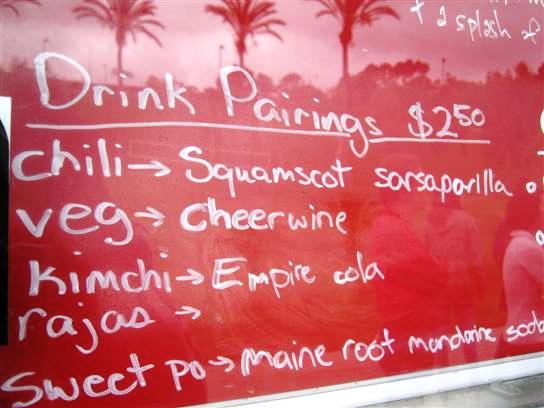 + a splash of
Drink Pairings $2.50
chili → Squamscot sarsaparilla
veg → cheerwine
kimchi → Empire cola
rajas →
sweet po → maine root mandarine